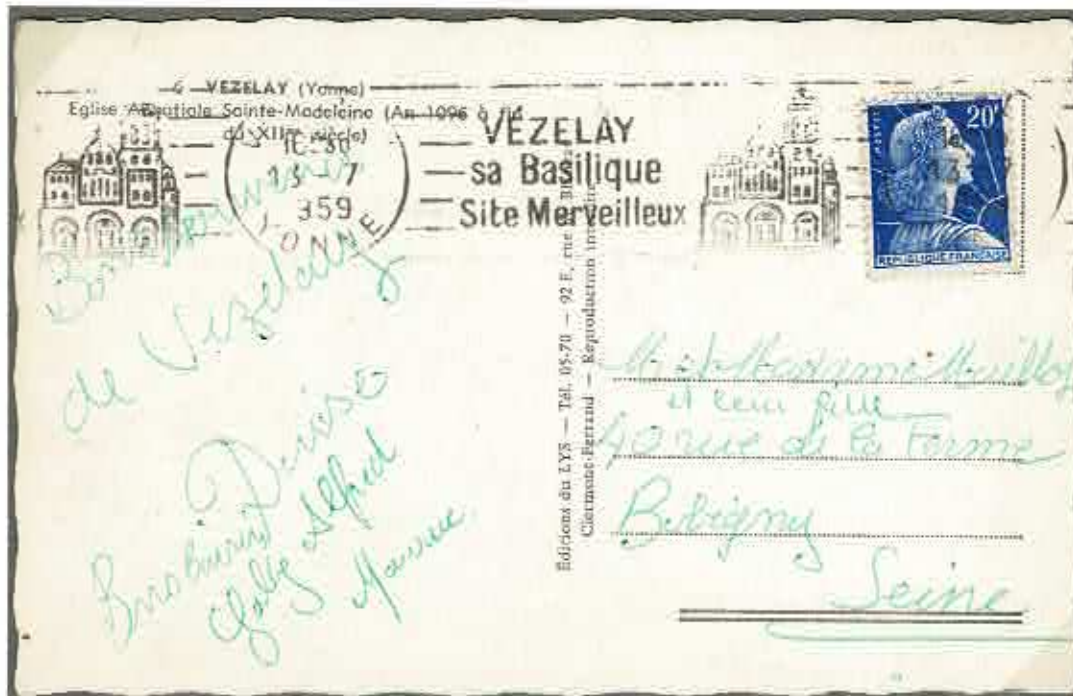 6 - VEZELAY (Yonne)
Eglise Abbatiale Sainte-Madeleine (An 1096 à fin
du XIIme siècle)
16-30
13-7
1959
YONNE
VEZELAY
sa Basilique
Site Merveilleux
POSTES
20F
REPUBLIQUE FRANÇAISE
Bon souvenir
de Vézelay
Denise
Gaby Alfred
Bons Baisers
Editions du LYS — Tél. 05-70 — 92 E, rue
Clermont-Ferrand — Reproduction
Mr et Madame
et leur fille
40 rue de la Ferme
Bobigny
Seine